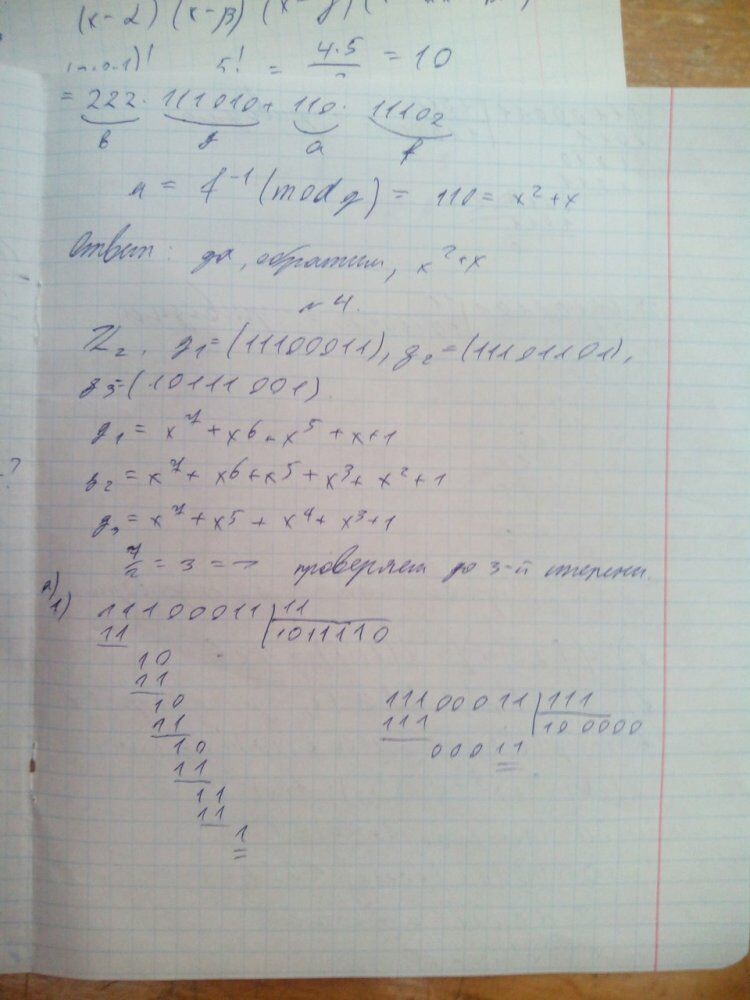 (x-α) (x-β) (x-γ) (
5! = 4·5 = 10
= 222· 111010+ 110· 11102
в g a f
u = f⁻¹(mod g) = 110 = x²+x
Ответ: да, обратим, x²+x
№4.
Z₂, g₁=(11100011), g₂=(11101101),
g₃=(10111001)
g₁ = x⁷+x⁶+x⁵+x+1
g₂ = x⁷+x⁶+x⁵+x³+x²+1
g₃ = x⁷+x⁵+x⁴+x³+1
7/2 = 3 => проверяем до 3-й степени.
а)
1) 11100011 | 11
11 1011110
10
11
10
11
10
11
11
11
1
11100011 | 111
111 100000
00011